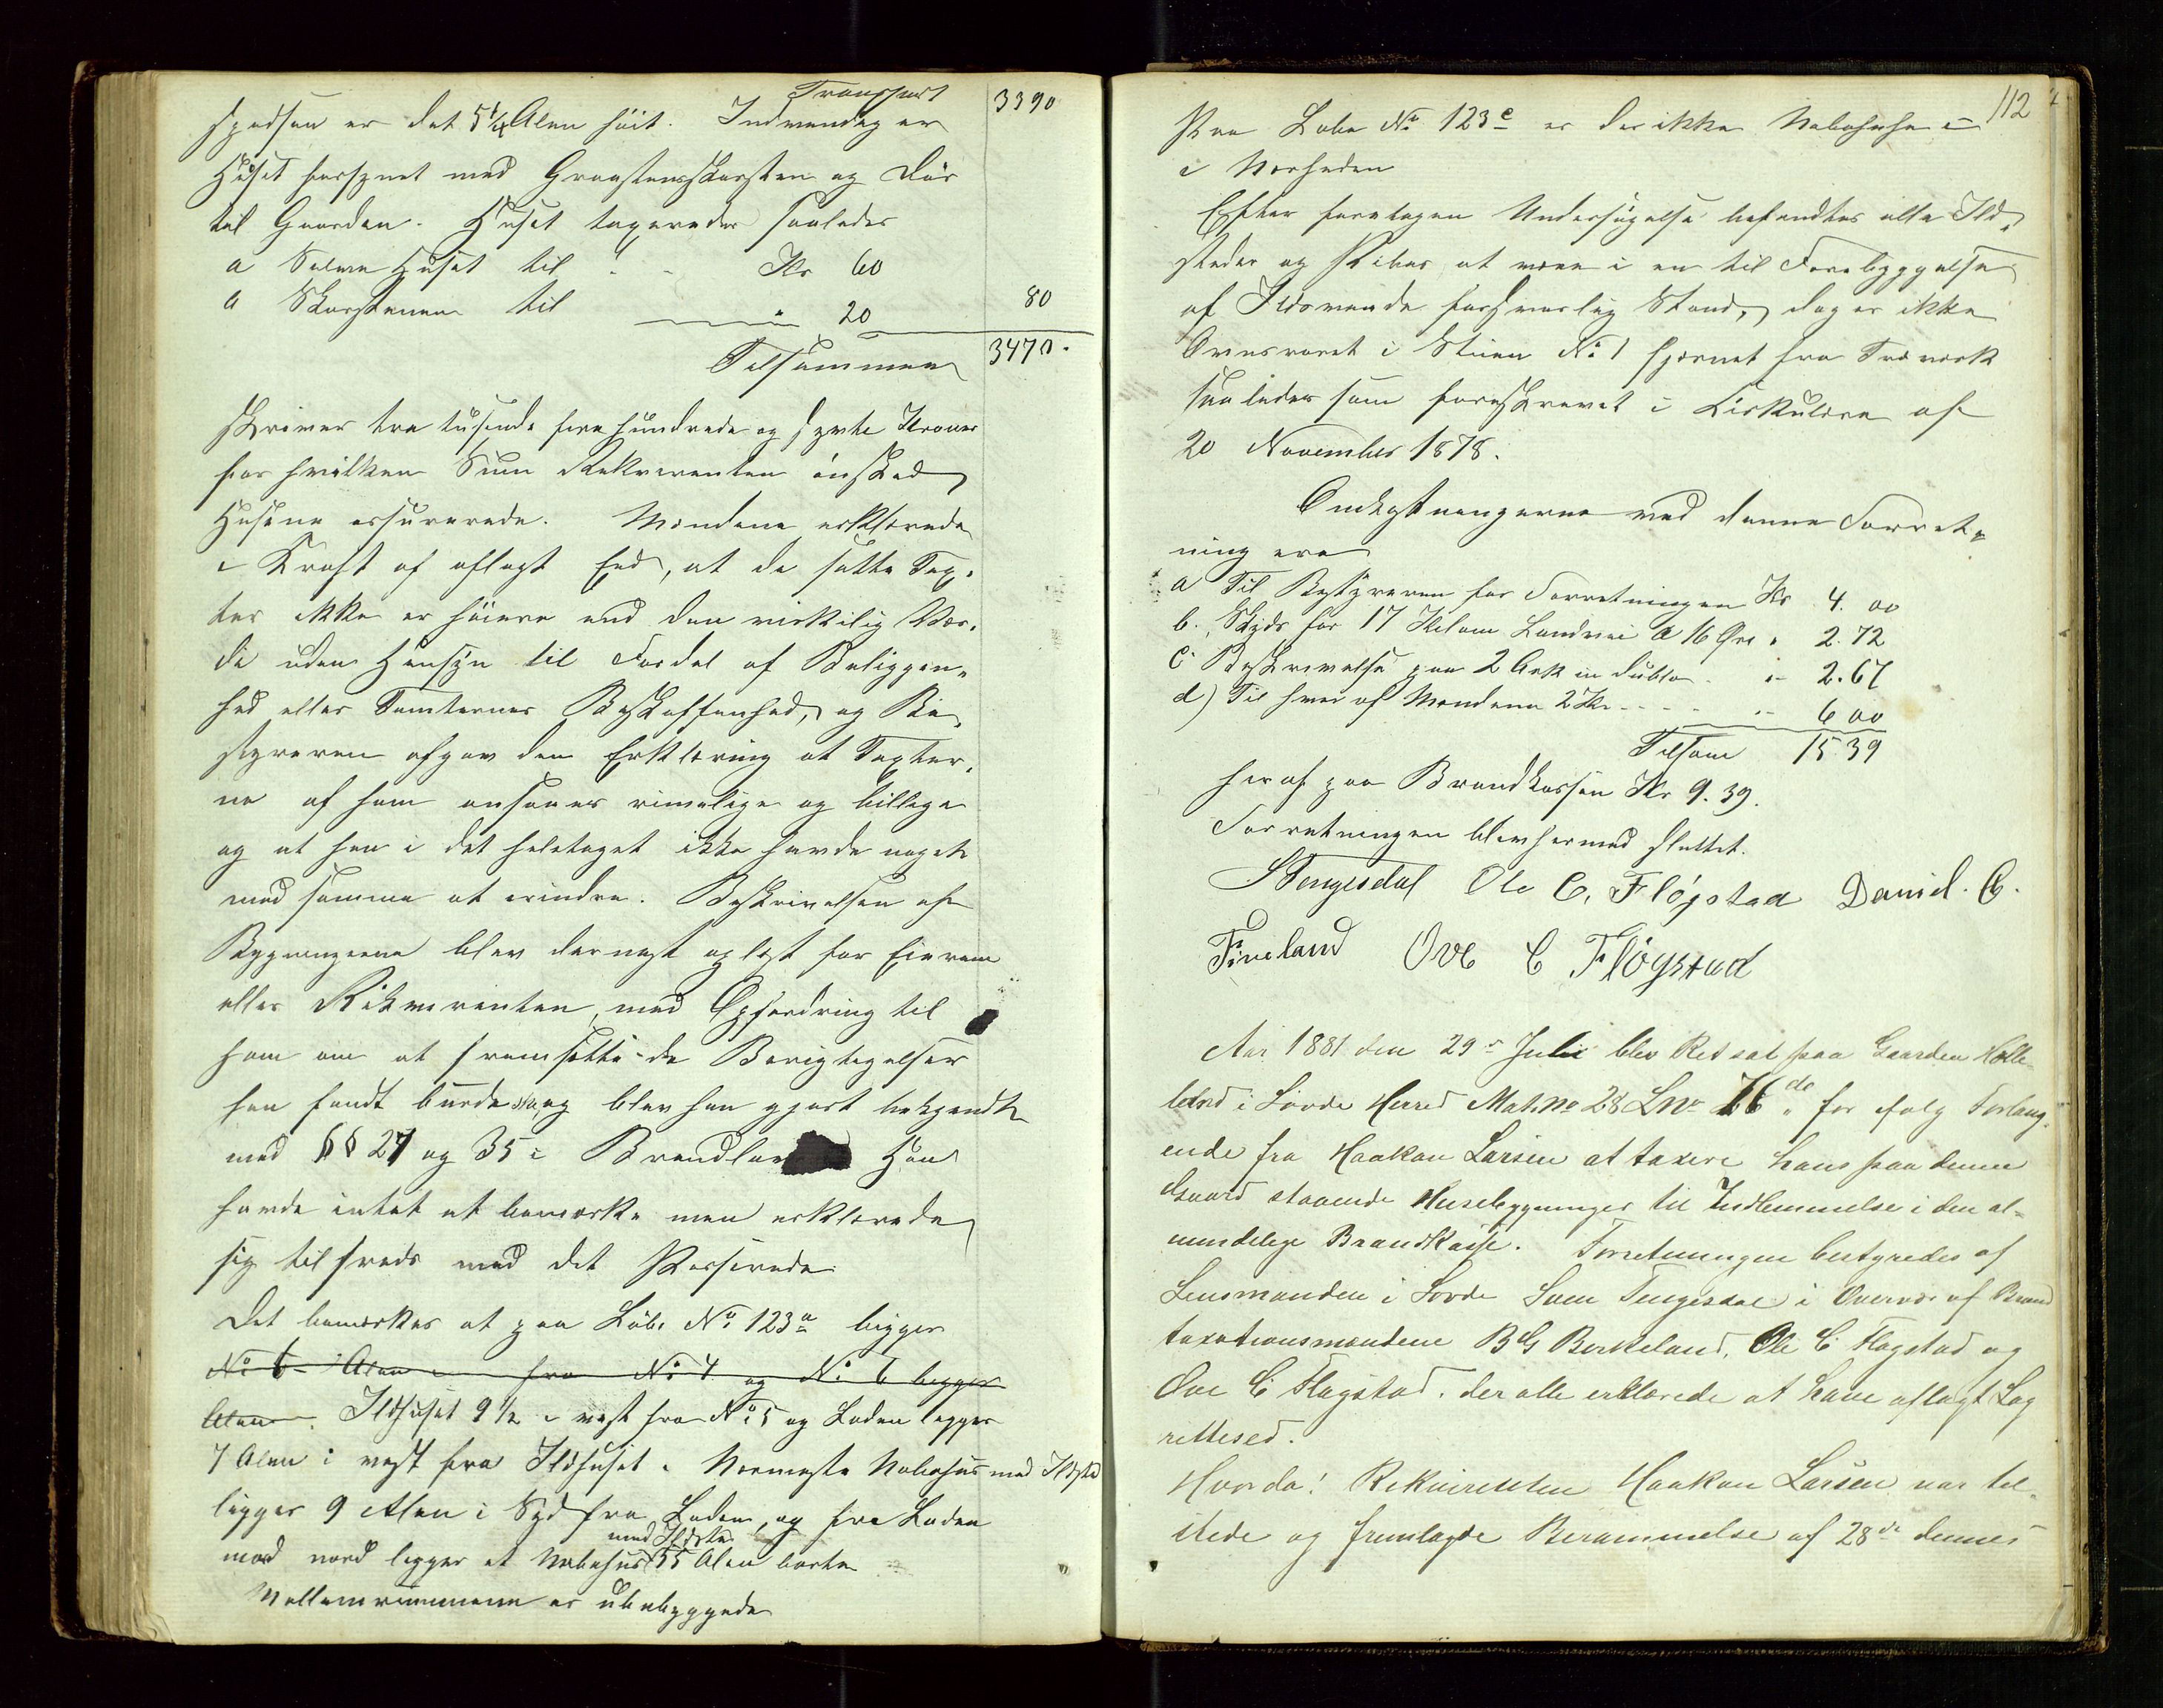 Transport 3390
spidsen er det 5¼ Alen höit. Indvendig er
Huset forsynet med Graastensskorsten og Dör
til Gaarden. Huset taxeredes saaledes
a Selve Huset til " - Kr 60
b Skorstenen til " 20 80
Tilsammen 3470.
skriver tre tusinde fire hundrede og sytti Kroner
for hvilken Sum Rekvirenten önsked
Husene assurerede. Mændene erklærede
i Kraft af aflagt Eed, at de satte Tax-
ter ikke er höiere end den virkelig Vær-
di uden Hensyn til Fordel af Beliggen-
hed eller Tomternes Beskaffenhed, og Be-
styreren afgav den Erklæring at Taxter-
ne af ham ansees rimelige og billige
og at han i det heletaget ikke havde noget
mod samme at erindre. Beskrivelsen af
Bygningerne blev dernæst oplæst for Eieren
eller Rekvirenten, med Opfordring til
ham om at fremsætte de Berigtigelser
han fandt burde ske, og blev han gjort bekjendt
med §§ 27 og 35 i Brandloven Han
havde intet at bemærke men erklærede
sig tilfreds med det Passerede.
Det bemærkes at paa Löbe No 123a ligger
No 6 Alen fra No 4 og No 6 ligger
Alen. Ildhuset 9½ i vest fra No 5 og Laden ligger
7 Alen i vest fra Ildhuset. Nærmeste Nabohus med Ildsted
ligger 9 Alen i Syd fra Laden, og fra Laden
mod nord ligger et Nabohus med Ildsted 55 Alen borte
Mellemrummene er ubebyggede
112
Paa Löbe No 123c er der ikke Nabohuse
i Nærheden
Efter foretagen Undersögelse befandtes alle Ild-
steder og Piber at være i en til Forebyggelse
af Ildsvaade forsvarlig Stand, dog er ikke
Ovnsröret i Stuen No 1 fjernet fra Træværk
saaledes som foreskrevet i Cirkulære af
20 November 1878.
Omkostningerne ved denne Forret-
ning ere
a Til Bestyreren for Forretningen Kr 4. 00
b. Skyds for 17 Kilom Landvei a 16 Öre " 2.72
c Beskrivelse paa 2 Ark in dublo - " 2.67
d) Til hver af Mændene 2 Kr - - - - " 6 00
Tilsam 15.39
heraf paa Brandkassen Kr 9.39.
Forretningen blev hermed sluttet.
STengesdal Ole C. Flögstad Daniel. C.
Fineland Ove C Flögstad
Aar 1881 den 29de Juli blev Ret sat paa Gaarden Hølle-
land i Sovde Herred Mat. No 28 Lno 76 de for ifølg Forlang-
ende fra Haakon Larsen at taxere hans paa denne
Gaard staaende Husebygninger til Indlemmelse i den al-
mindelige Brandkasse. Forretningen bestyredes af
Lensmanden i Sovde Sven Tengesdal i Overvær af Brand
taxationsmændene B G Birkeland, Ole C Flogstad og
Ove C Flogstad. der alle erklærede at have aflagt Lag
rettesed.
Hvorda! Rekvirenten Haakon Larsen var til-
stede og fremlagde Berammelse af 28de dennes